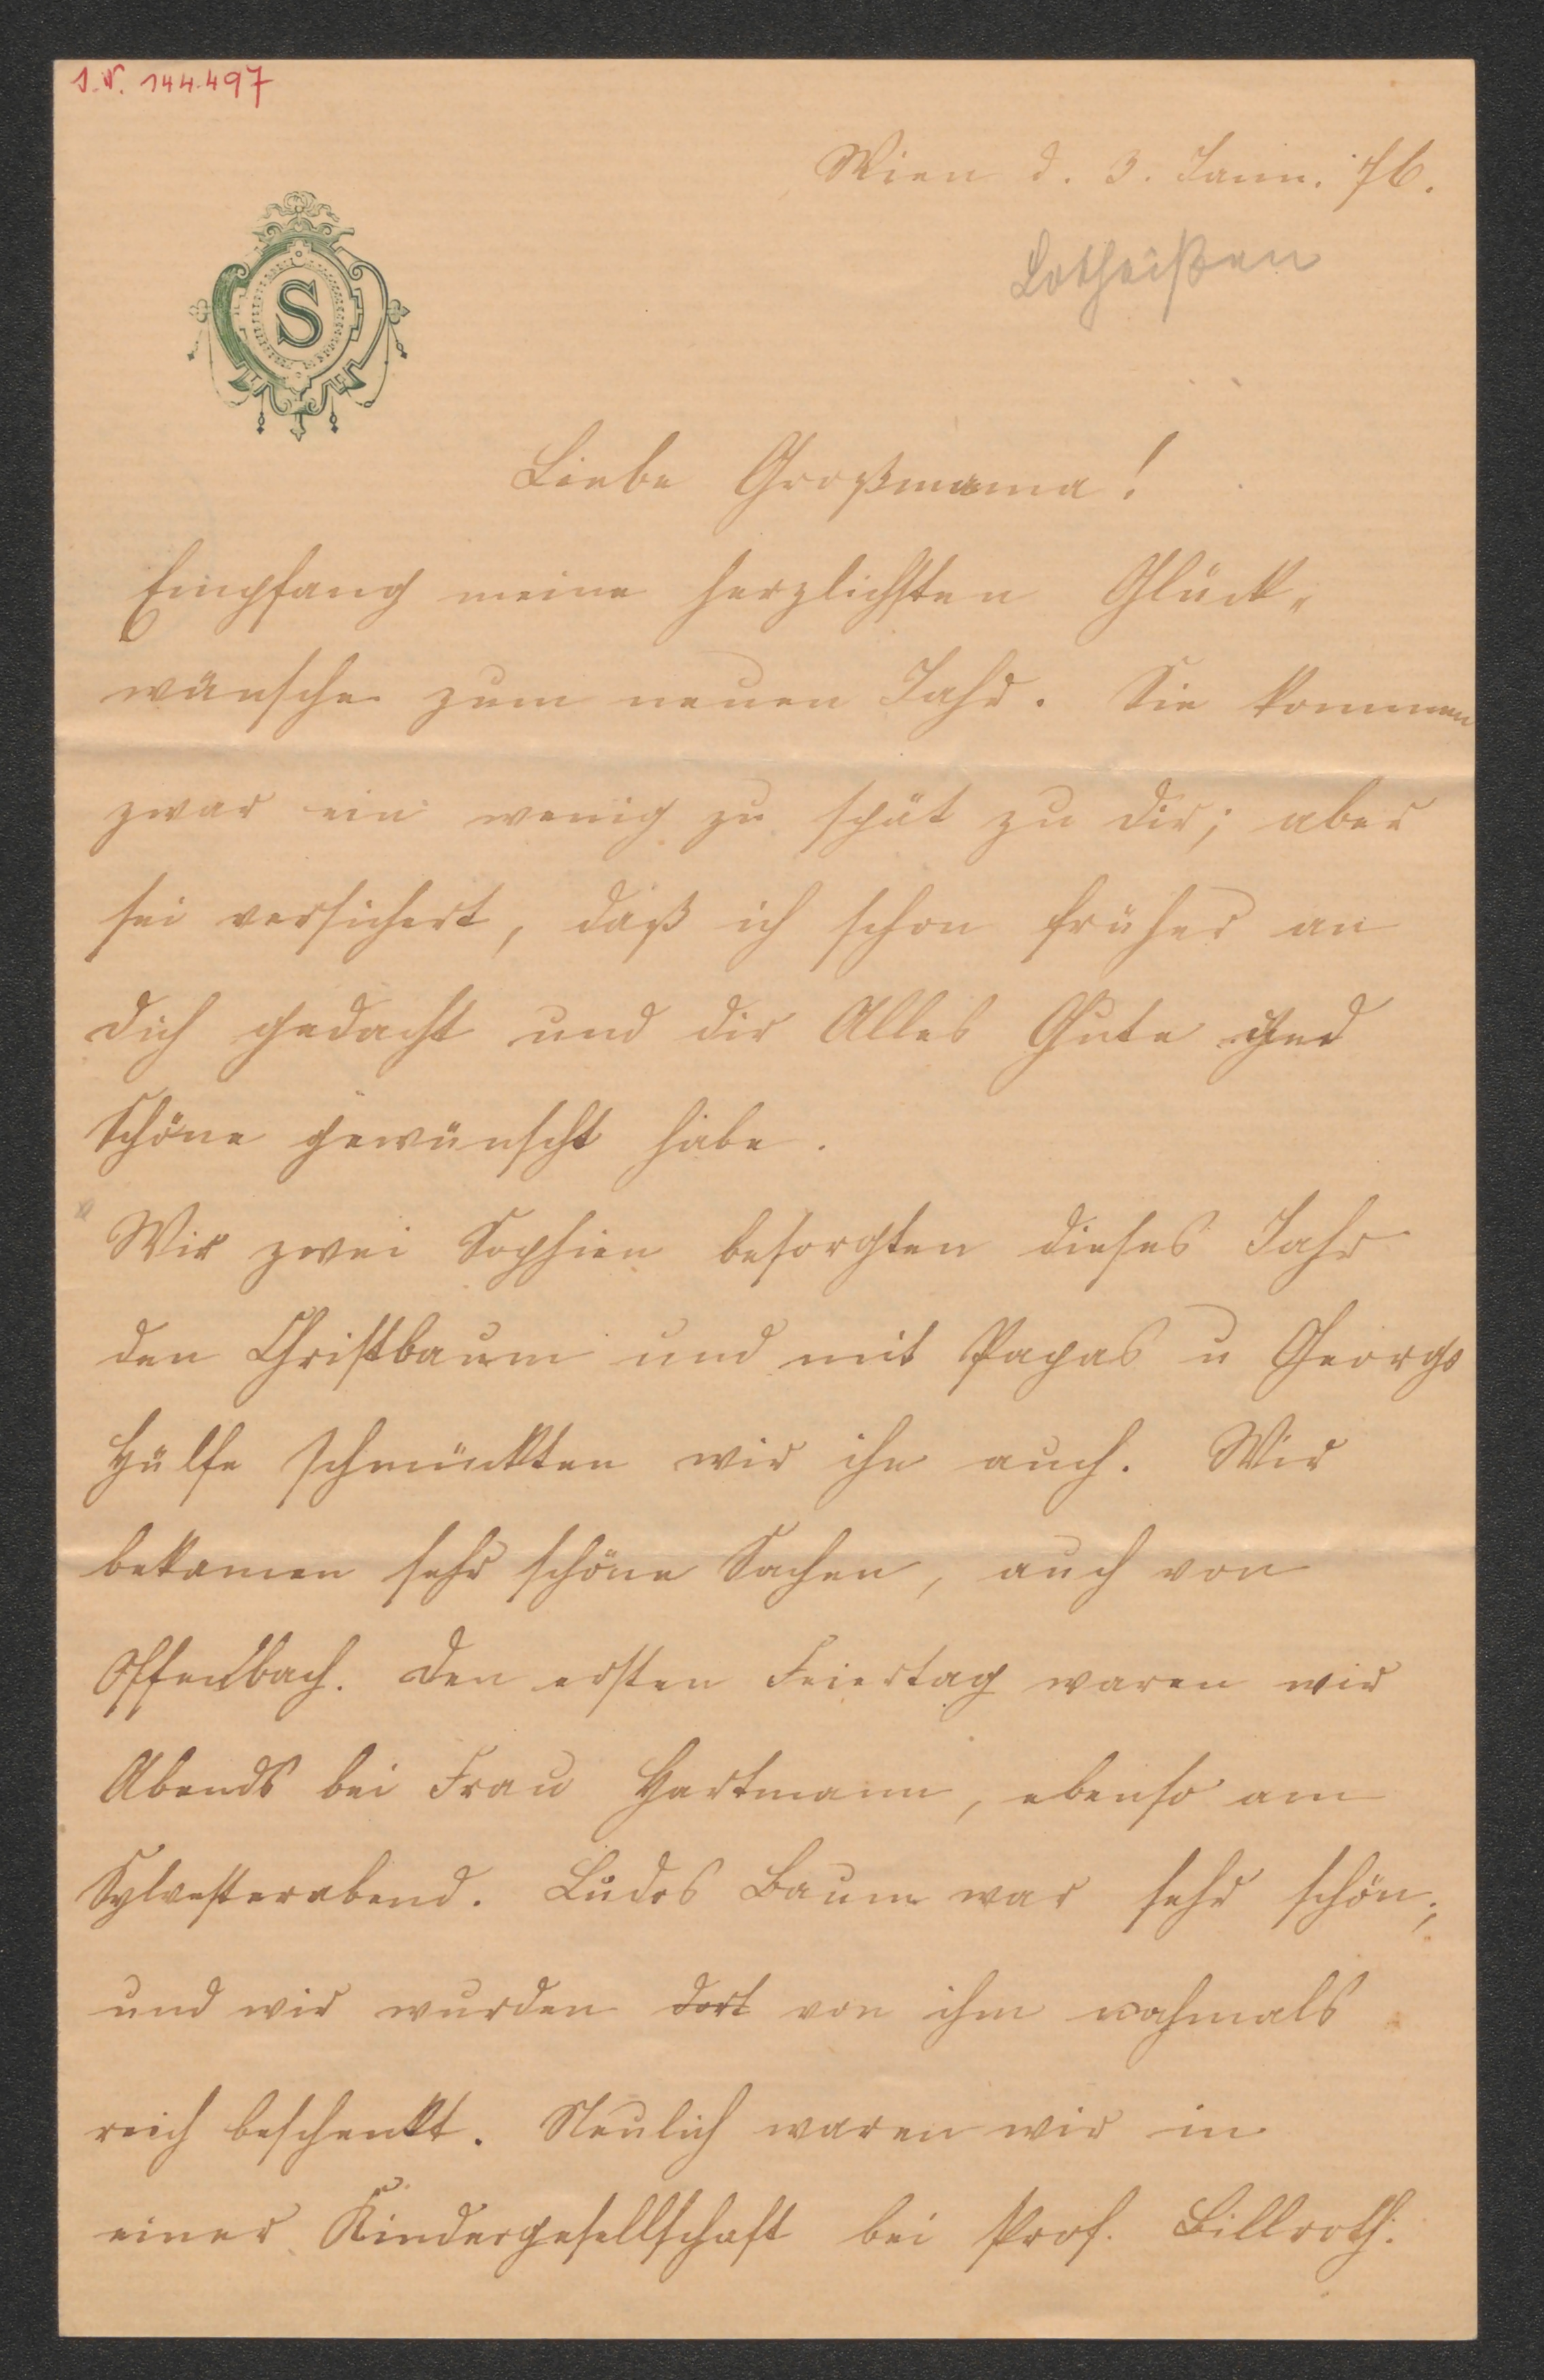 I. N. 144.497
Wien d. 3. Jann. 76.
Lotheißen
S
Liebe Großmama!
Empfang meine herzlichsten Glück„
wünsche zum neuen Jahr. Sie kommen
zwar ein wenig zu spät zu dir; aber
sei versichert, daß ich schon früher an
dich gedacht und dir Alles Gute und
Schöne gewünscht habe.
Wir zwei Sophien besorgten dieses Jahr
den Christbaum und mit Papas u Georgs
Hülfe schmückten wir ihn auch. Wir
bekamen sehr schöne Sachen, auch von
Offenbach. Den ersten Feiertag waren wir
Abends bei Frau Hartmann, ebenso am
Sylvesterabend. Ludos Baum war sehr schön;
und wir wurden dort von ihm nochmals
reich beschenkt. Neulich waren wir in
einer Kindergesellschaft bei Prof. Billroth.